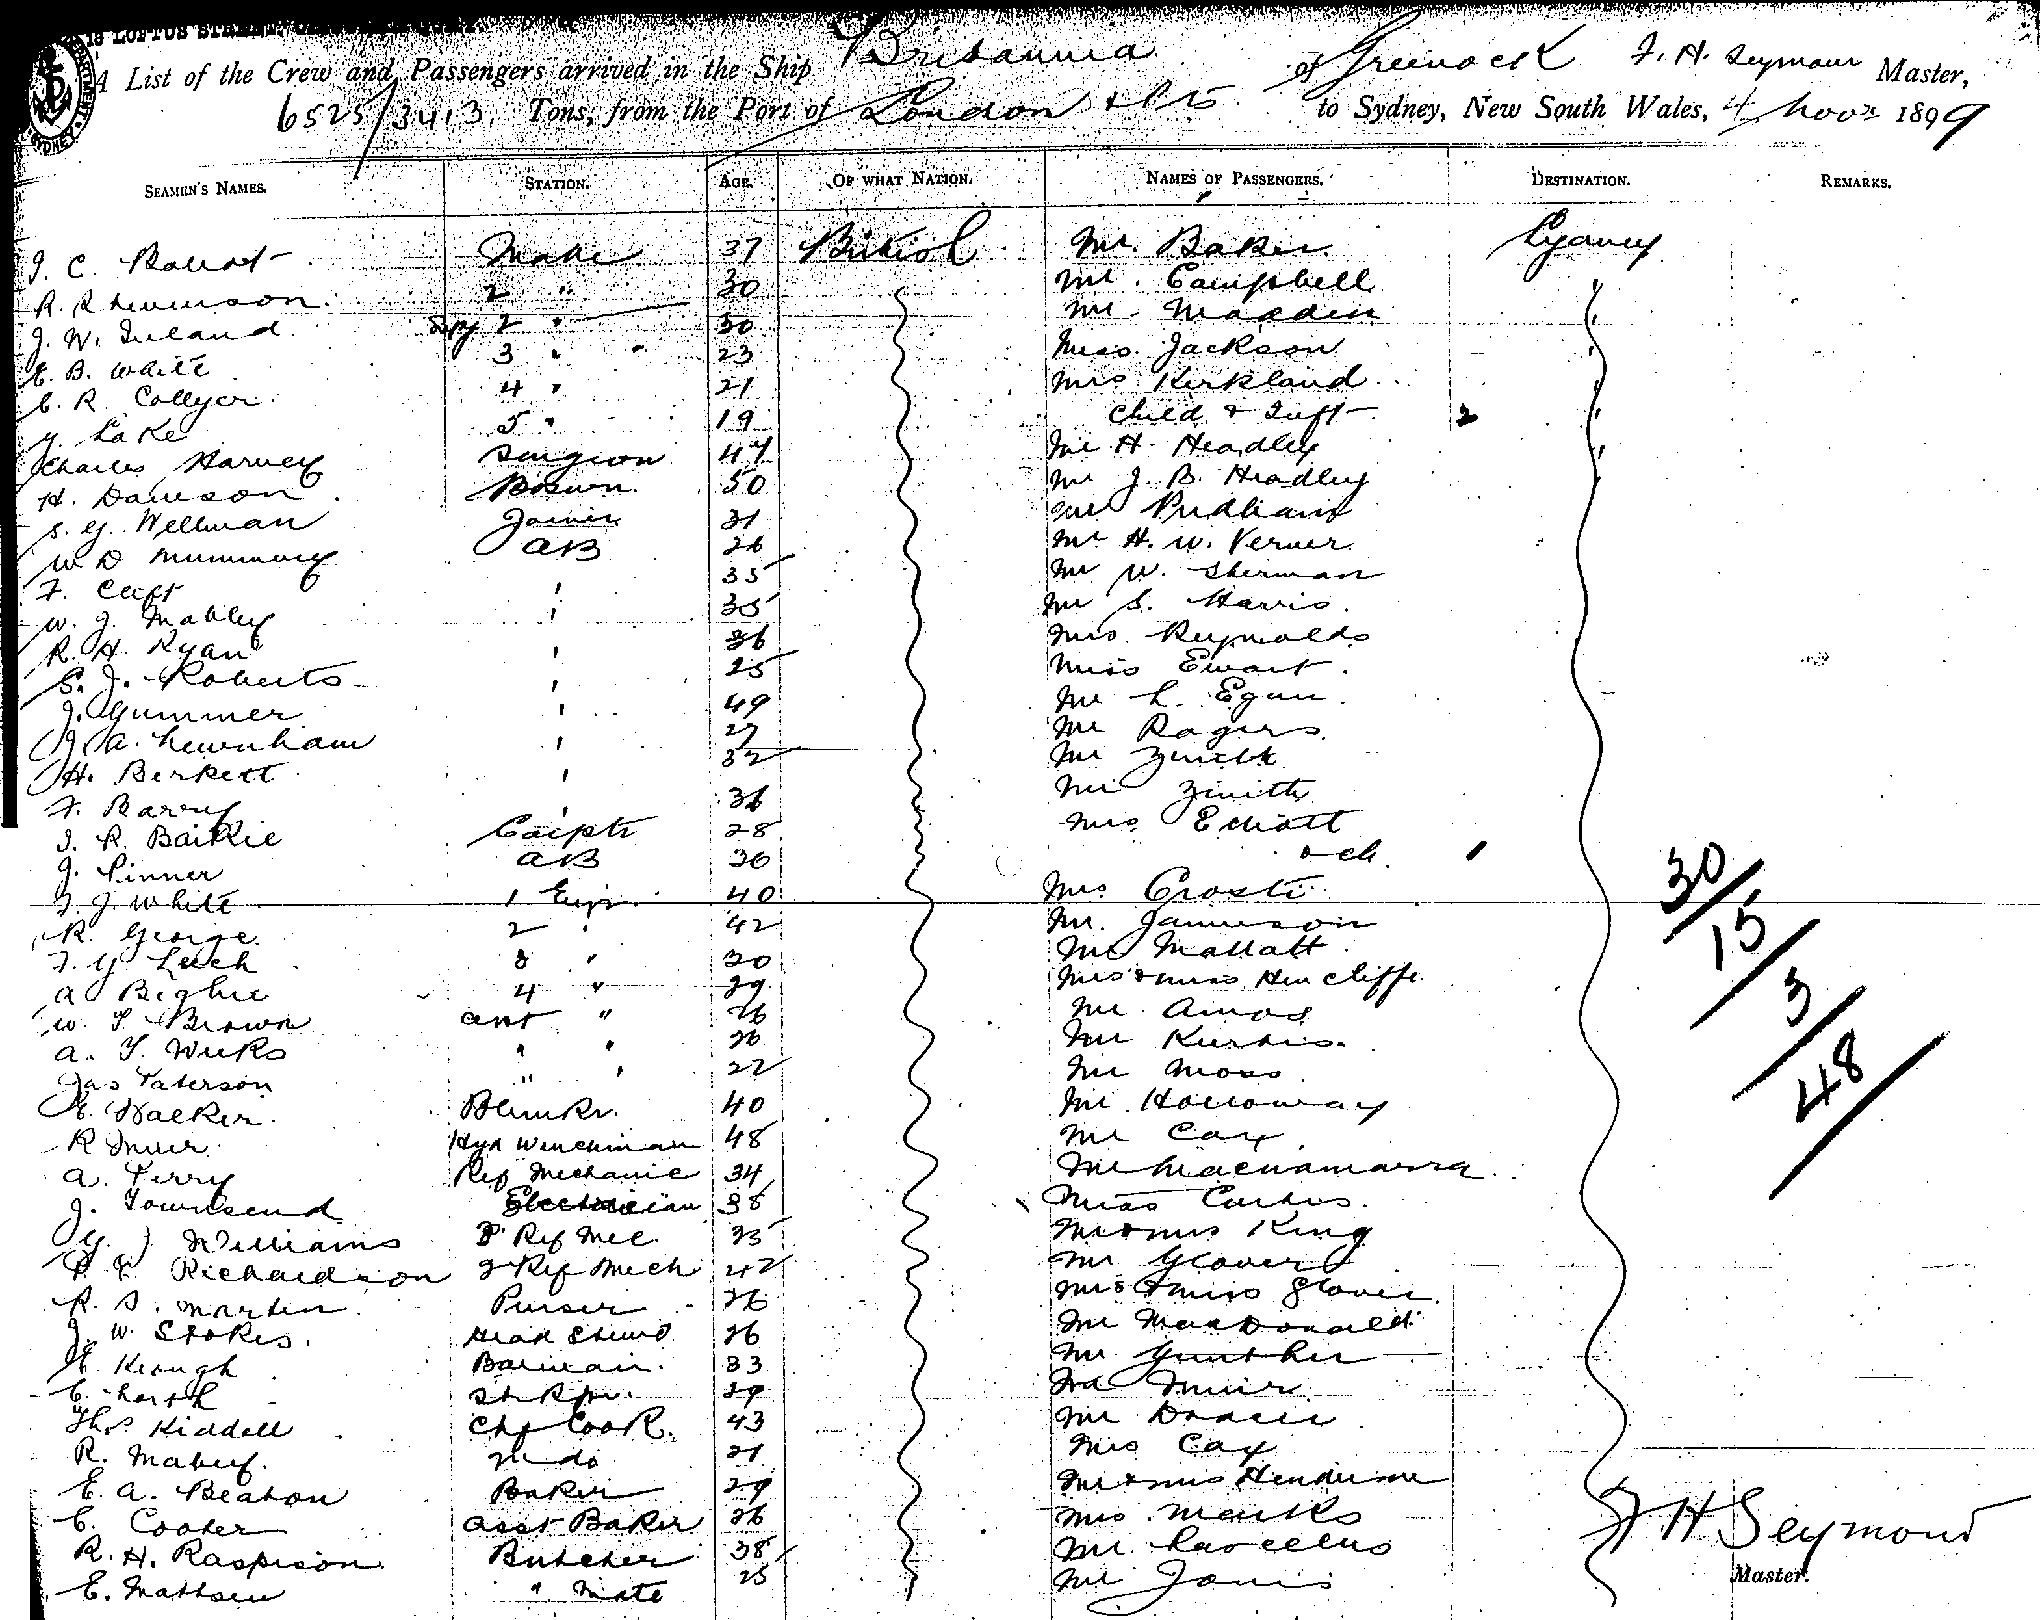 13 LOFTUS STREET,
A List of the Crew and Passengers arrived in the Ship Britannia of Greenock F. H. Seymour Master,
6525/3413 Tons, from the Port of London & Pts to Sydney, New South Wales, 4 Novr 1899
SEAMEN'S NAMES. STATION. AGE. OF WHAT NATION. NAMES OF PASSENGERS. DESTINATION. REMARKS.
Mate 37 British Mr. Baker Sydney
2 " 30 Mr. Campbell "
J. W. Ireland 2 " 30 Mr Madden "
E. B. White 3 " " 23 Miss Jackson "
C. R. Collyer 4 " 21 Mrs Kirkland "
Lake 5 " 19 Child & Inft 2 "
Charles Harvey Surgeon 47 Mr H. Headley "
H. Davison Bosun 50 Mr J. B. Headley
S. G. Wellman Joiner 31 Mr Pridham
W D Mummery AB 26 Mr H. W. Verner
F. Clift " 35 Mr W. Sherman
W. J. Mabley " 35 Mr S. Harris
R. H. Ryan " 36 Mrs Reynolds
E. J. Roberts " 25 Miss Ewart
J. Gummer " 49 Mr L. Egan
J. A. Newnham " 27 Mr Rogers
H. Berkett " 32 Mr Zenith
F. Barry " 36 Mr Zenith
J. R. Baikie 28 Mrs Elliott
J. Pinner AB 30 & ch 1
F. J. White 1 Engr 40 Mrs Crosti
R. George 2 " 42 Mr. Jamieson
F. G. Leech 3 " 30 Mr Mallatt
A Bighie 4 " 29 Mrs & Miss Hincliffe
W. T. Brown Asst " 26 Mr Amos
A. T. Weeks " " 26 Mr Kurtis
Jas Paterson " " 22 Mr Moss
E. Walker 40 Mr Holloway
R Muir Hyd Winchman 48 Mr Cay
A. Perry Ref Mechanic 34 Mr Macnamarra
J. Townsend Electrician 38 Miss Curtis
Williams Ref Mec 35 Mr & Mrs King
Richardson 2 Ref Mech 42 Mr Glover
R. S. Martin Purser 26 Mrs & Miss Glover
J. W. Stokes Head Stewd 26 Mr MacDonald
E. Keough Barman 33 Mr Gunther
C. North 29 Muir
Thos Kiddell Chf Cook 43 Mr
R. Mabey 2nd do 21 Mrs Cay
E. A. Beaton Baker 29 Mr & Mrs Henderson
C. Cooter Asst Baker 26 Mrs Menks
R. H. Raspison Butcher 38 Mr
E. Mathsen " Mate 25 Mr Jones
30
15
3
48
F H Seymour
Master.